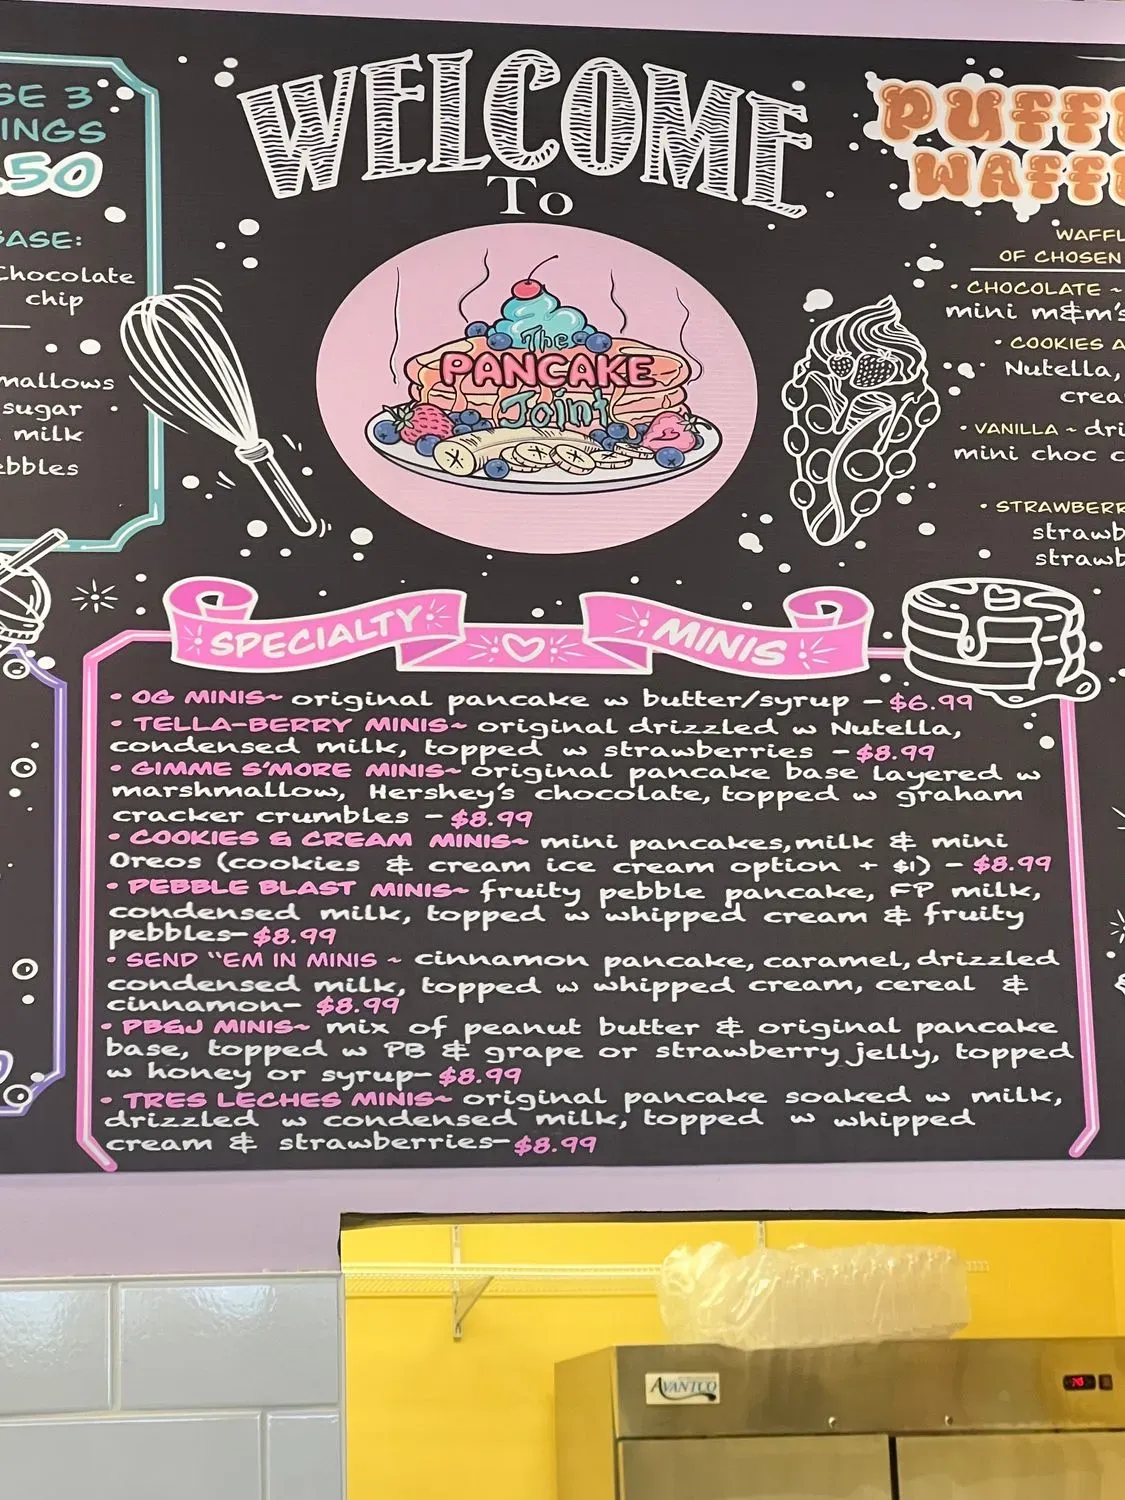 WELCOME
To
The
PANCAKE
Joint
SE 3
INGS
.50
BASE:
Chocolate
chip
mallows
sugar •
milk
ebbles
PUFF
WAFF
WAFFL
OF CHOSEN
• CHOCOLATE ~
mini m&m's
• COOKIES A
Nutella,
crea
• VANILLA ~ dri
mini choc c
• STRAWBERR
strawb
strawb
SPECIALTY ♡ MINIS
• OG MINIS~ original pancake w butter/syrup - $6.99
• TELLA-BERRY MINIS~ original drizzled w Nutella,
condensed milk, topped w strawberries - $8.99
• GIMME S'MORE MINIS~ original pancake base layered w
marshmallow, Hershey's chocolate, topped w graham
cracker crumbles - $8.99
• COOKIES & CREAM MINIS~ mini pancakes, milk & mini
Oreos (cookies & cream ice cream option + $1) - $8.99
• PEBBLE BLAST MINIS~ fruity pebble pancake, FP milk,
condensed milk, topped w whipped cream & fruity
pebbles- $8.99
• SEND "EM IN MINIS ~ cinnamon pancake, caramel, drizzled
condensed milk, topped w whipped cream, cereal &
cinnamon- $8.99
• PB&J MINIS~ mix of peanut butter & original pancake
base, topped w PB & grape or strawberry jelly, topped
w honey or syrup- $8.99
• TRES LECHES MINIS~ original pancake soaked w milk,
drizzled w condensed milk, topped w whipped
cream & strawberries- $8.99
AVANTCO